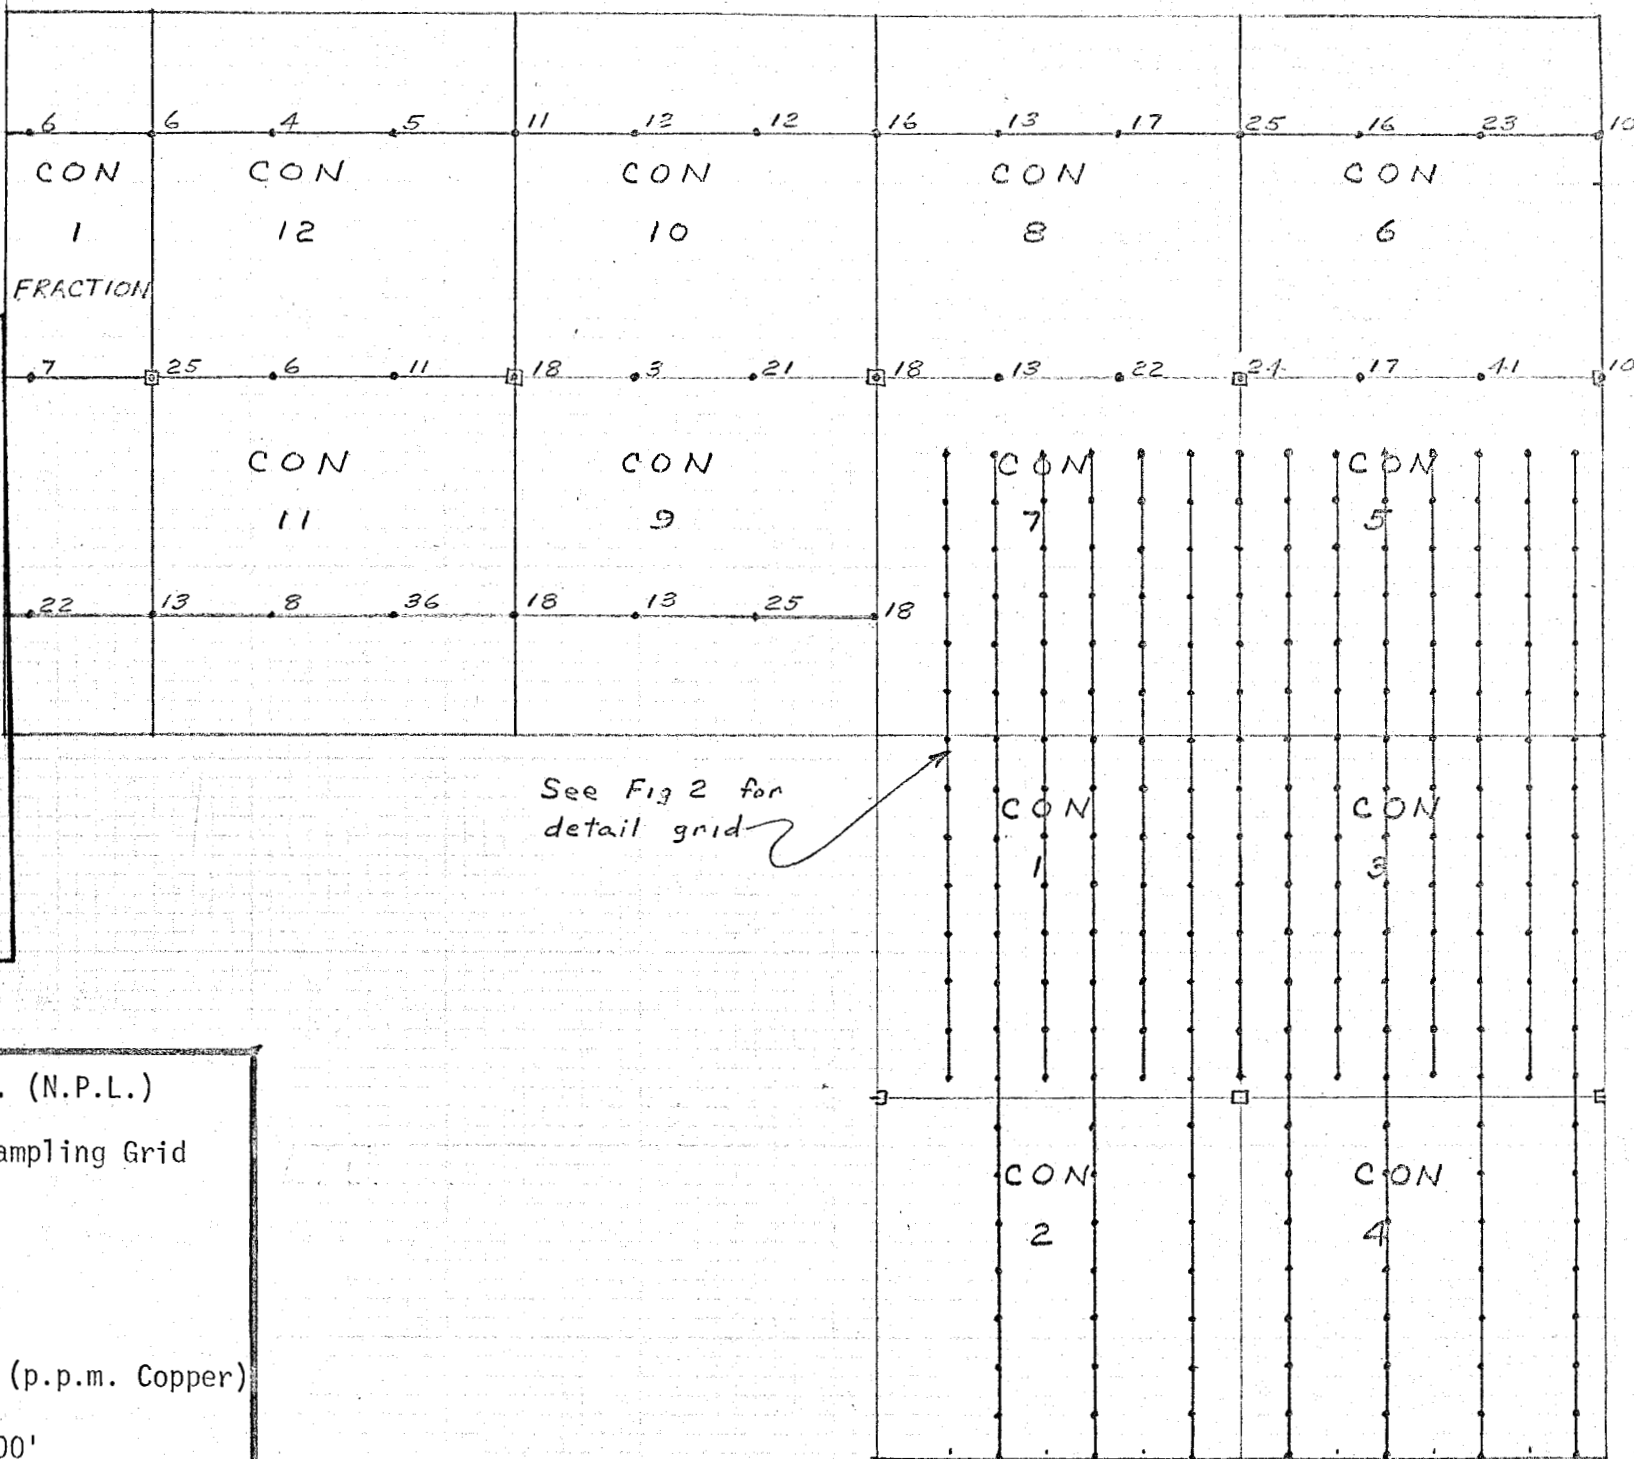 6 6 4 5 11 12 12 16 13 17 25 16 23 10
CON CON CON CON CON
1 12 10 8 6
FRACTION
7 25 6 11 18 3 21 18 13 22 24 17 41 10
CON CON CON CON
11 9 7 5
22 13 8 36 18 13 25 18
See Fig 2 for
detail grid
CON CON
1 3
CON CON
2 4
. (N.P.L.)
ampling Grid
(p.p.m. Copper)
00'